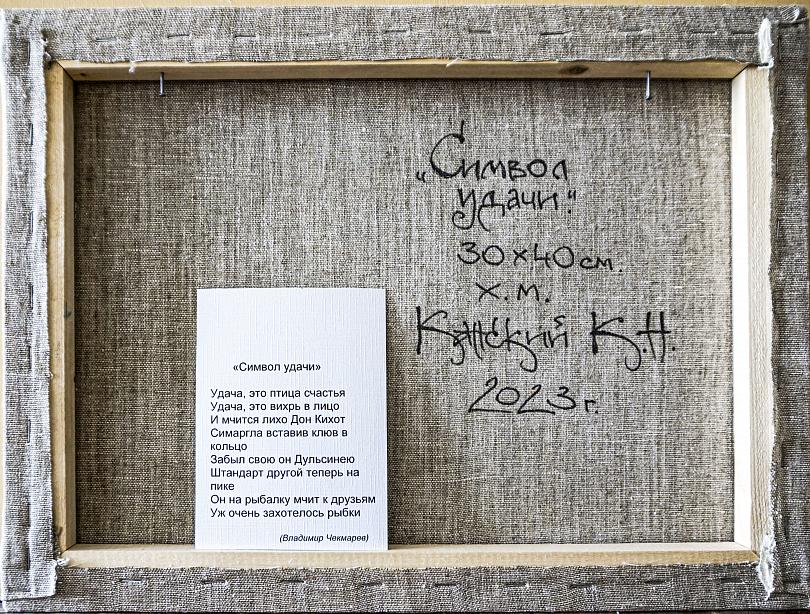 „Символ
удачи."
30х40см.
х.м.
К.Н.
2023г.
«Символ удачи»
Удача, это птица счастья
Удача, это вихрь в лицо
И мчится лихо Дон Кихот
Симаргла вставив клюв в
кольцо
Забыл свою он Дульсинею
Штандарт другой теперь на
пике
Он на рыбалку мчит к друзьям
Уж очень захотелось рыбки
(Владимир Чекмарев)